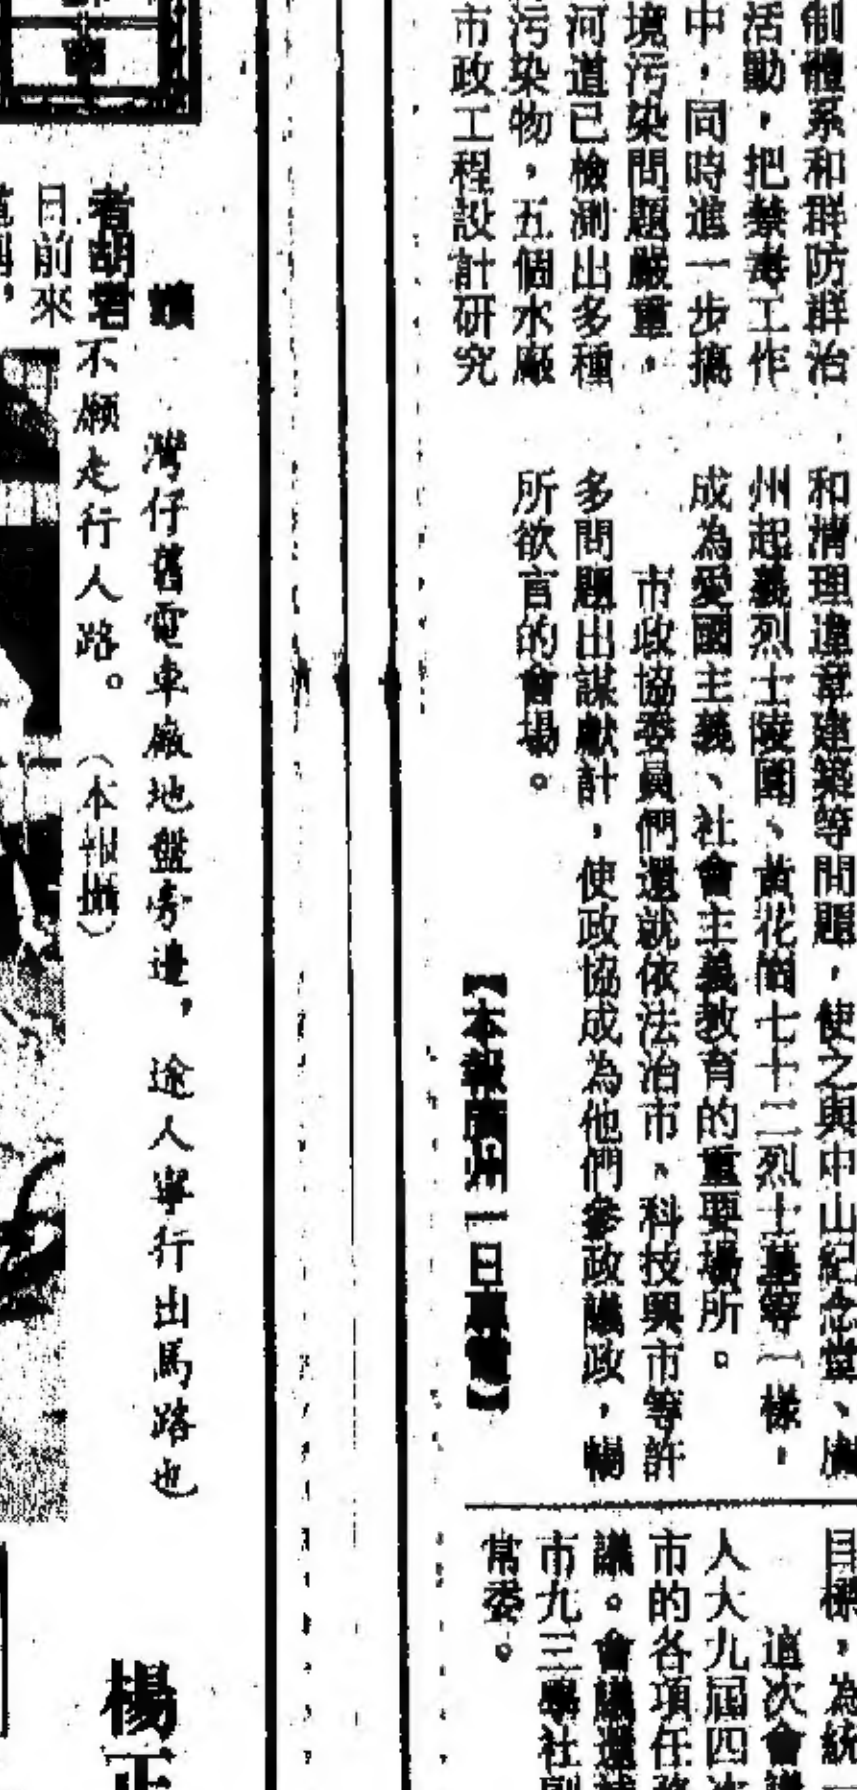 制體系和群防群治
活動，把禁毒工作
中，同時進一步搞
境污染問題嚴重，
河道已檢測出多種
污染物，五個水廠
市政工程設計研究
和清理違章建築等問題，使之與中山紀念堂、廣
州起義烈士陵園、黃花崗七十二烈士墓等一樣，
成為愛國主義、社會主義教育的重要場所。
市政協委員們還就依法治市、科技興市等許
多問題出謀獻計，使政協成為他們參政議政，暢
所欲言的會場。
【本報廣州一日專電】
目標，為統
這次會議
人大九屆四次
市的各項任務
議。會議還
市九三學社副
常委。
灣仔舊電車廠地盤旁邊，途人寧行出馬路也
不願走行人路。（本報攝）
者胡君
日前來
楊正